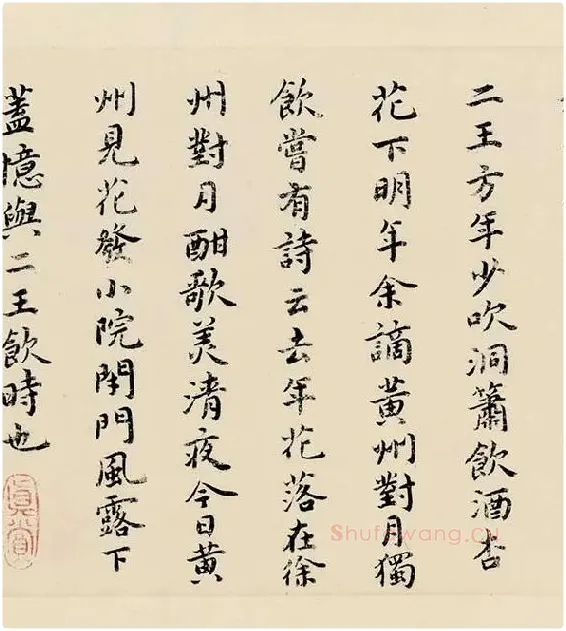 二王方年少吹洞簫飲酒杏
花下明年余謫黃州對月獨
飲嘗有詩云去年花落在徐
州對月酣歌美清夜今日黃
州見花發小院閉門風露下
蓋憶與二王飲時也
真賞
Shufawang.cn